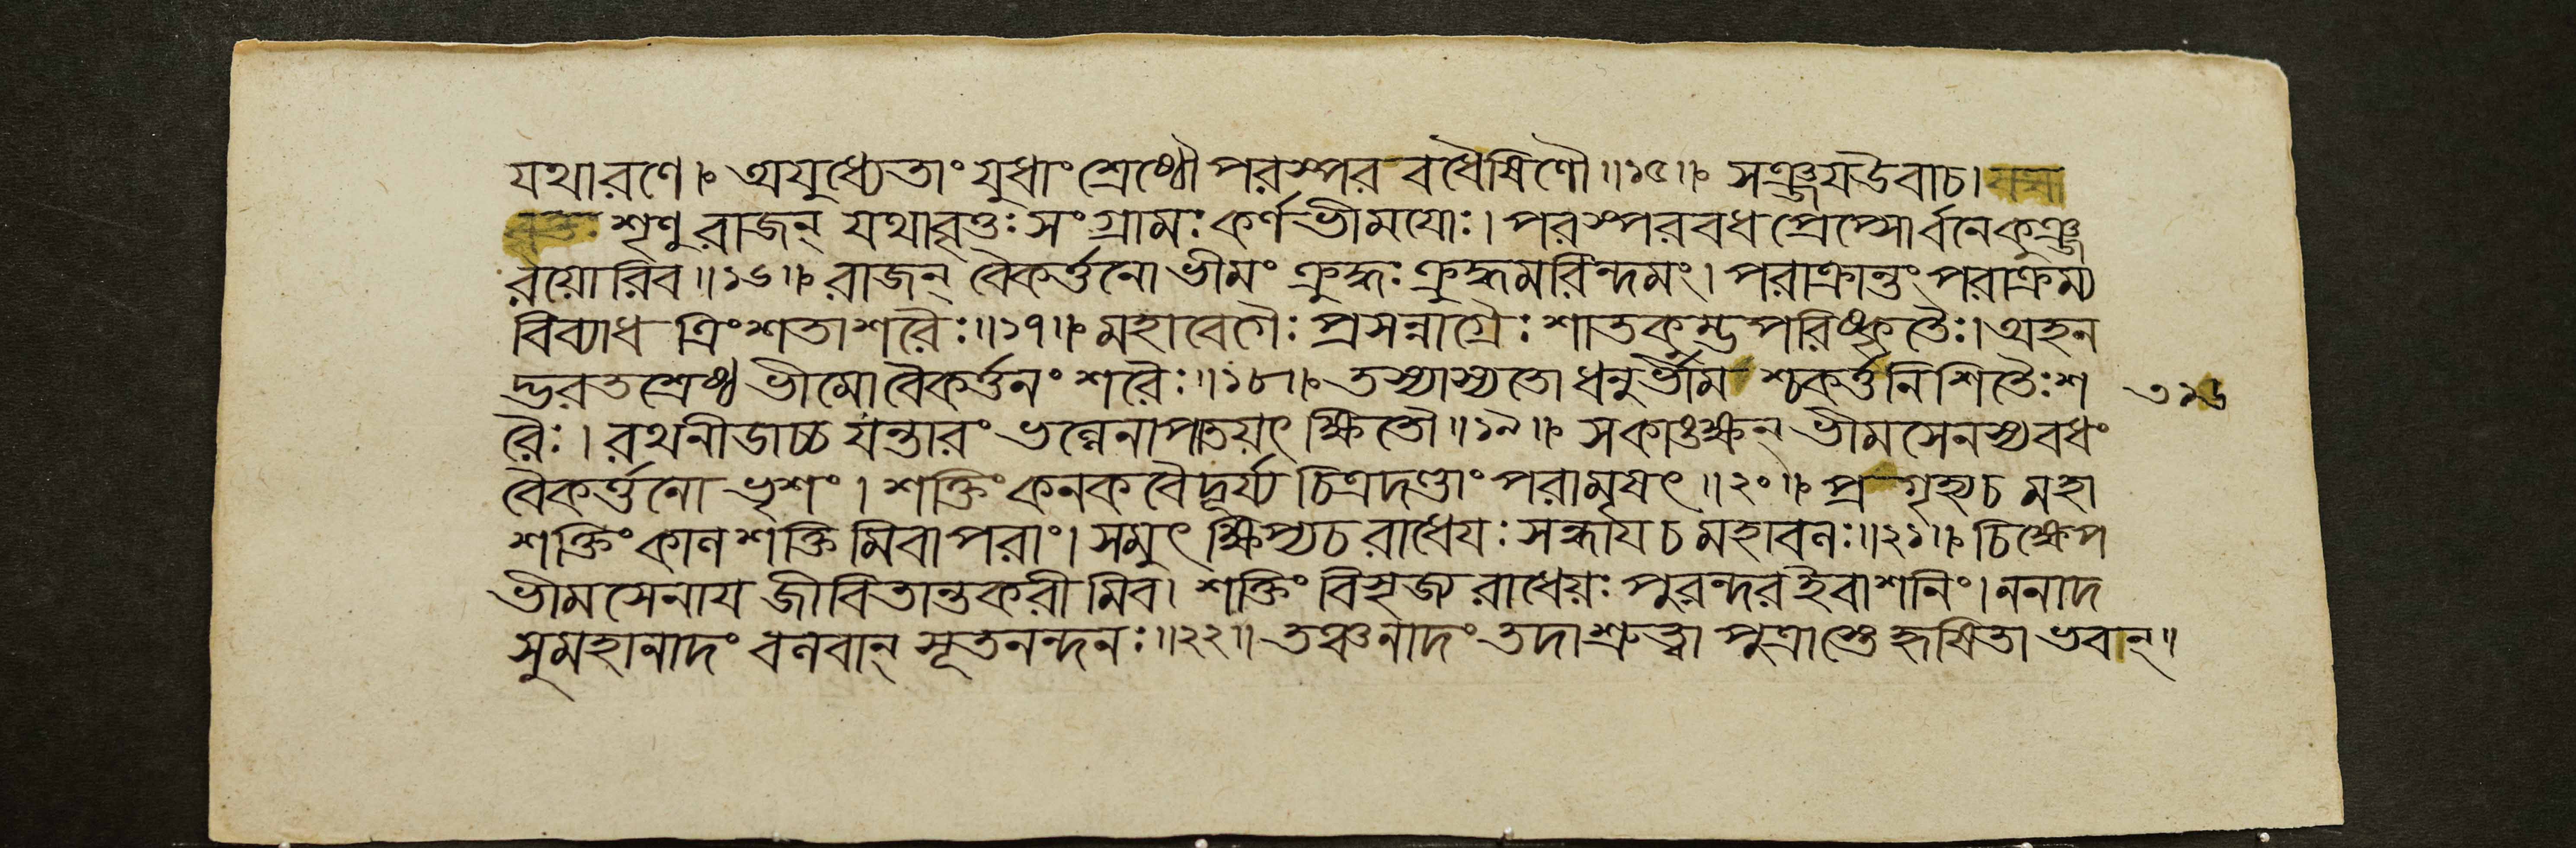 যথারণে। অযুধ্যেতাং যুধাং শ্রেষ্ঠৌ পরস্পর বধৈষিণৌ॥১৫॥ সঞ্জয়উবাচ।
শৃণু রাজন্ যথাবৃত্তঃ সংগ্রামঃ কর্ণভীময়োঃ। পরস্পরবধ প্রেপ্সোর্বনেকুঞ্জ
রয়োরিব॥১৬॥ রাজন্ বৈকর্ত্তনো ভীমং ক্রুদ্ধঃ ক্রুদ্ধমরিন্দমং। পরাক্রান্তং পরাক্রম্য
বিব্যাধ ত্রিংশতাশরৈঃ॥১৭॥ মহাবেগৈঃ প্রসন্নাগ্রৈঃ শাতকুম্ভপরিষ্কৃতৈঃ। অহন
দ্ভরতশ্রেষ্ঠ ভীমোবৈকর্ত্তনং শরৈঃ॥১৮॥ তস্যাস্যতো ধনুর্ভীম শ্চকর্ত্ত নিশিতৈঃশ
রৈঃ। রথনীডাচ্চ যন্তারং ভল্লেনাপাতয়ৎ ক্ষিতৌ॥১৯॥ সকাঙক্ষন্ ভীমসেনস্যবধং
বৈকর্ত্তনো ভৃশং। শক্তিং কনকবৈদূর্য্য চিত্রদণ্ডাং পরামৃষৎ॥২০॥ প্রগৃহ্যচ মহা
শক্তিং কালশক্তি মিবাপরাং। সমুৎ ক্ষিপ্যচ রাধেয়ঃ সন্ধায় চ মহাবলঃ॥২১॥ চিক্ষেপ
ভীমসেনায় জীবিতান্তকরী মিব। শক্তিং বিসৃজ্য রাধেয়ঃ পুরন্দর ইবাশনিং। ননাদ
সুমহানাদং বলবান্ সূতনন্দনঃ॥২২॥ তঞ্চনাদং তদাশ্রুত্বা পুত্রাস্তে হৃষিতা ভবান্॥